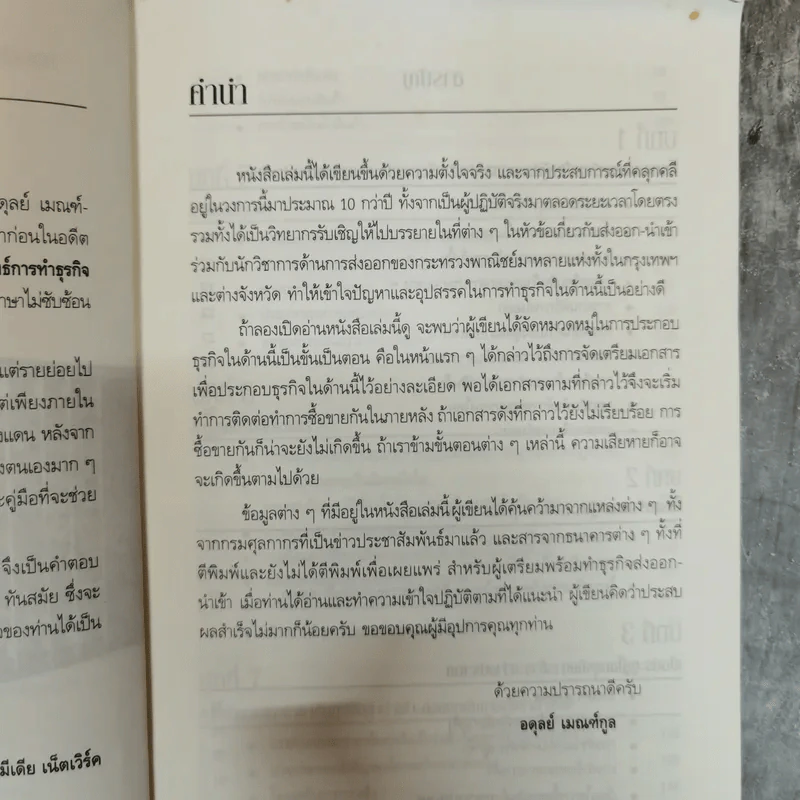 ดุลย์ เมณฑ์-
าก่อนในอดีต
ธ์การทำธุรกิจ
าษาไม่ซับซ้อน
แต่รายย่อยไป
ต่เพียงภายใน
แดน หลังจาก
งตนเองมาก ๆ
ะคู่มือที่จะช่วย
จึงเป็นคำตอบ
ทันสมัย ซึ่งจะ
ของท่านได้เป็น
มีเดีย เน็ตเวิร์ค
คำนำ
หนังสือเล่มนี้ได้เขียนขึ้นด้วยความตั้งใจจริง และจากประสบการณ์ที่คลุกคลี
อยู่ในวงการนี้มาประมาณ 10 กว่าปี ทั้งจากเป็นผู้ปฏิบัติจริงมาตลอดระยะเวลาโดยตรง
รวมทั้งได้เป็นวิทยากรรับเชิญให้ไปบรรยายในที่ต่าง ๆ ในหัวข้อเกี่ยวกับส่งออก-นำเข้า
ร่วมกับนักวิชาการด้านการส่งออกของกระทรวงพาณิชย์มาหลายแห่งทั้งในกรุงเทพฯ
และต่างจังหวัด ทำให้เข้าใจปัญหาและอุปสรรคในการทำธุรกิจในด้านนี้เป็นอย่างดี
ถ้าลองเปิดอ่านหนังสือเล่มนี้ดู จะพบว่าผู้เขียนได้จัดหมวดหมู่ในการประกอบ
ธุรกิจในด้านนี้เป็นขั้นเป็นตอน คือในหน้าแรก ๆ ได้กล่าวไว้ถึงการจัดเตรียมเอกสาร
เพื่อประกอบธุรกิจในด้านนี้ไว้อย่างละเอียด พอได้เอกสารตามที่กล่าวไว้จึงจะเริ่ม
ทำการติดต่อทำการซื้อขายกันในภายหลัง ถ้าเอกสารดังที่กล่าวไว้ยังไม่เรียบร้อย การ
ซื้อขายกันก็น่าจะยังไม่เกิดขึ้น ถ้าเราข้ามขั้นตอนต่าง ๆ เหล่านี้ ความเสียหายก็อาจ
จะเกิดขึ้นตามไปด้วย
ข้อมูลต่าง ๆ ที่มีอยู่ในหนังสือเล่มนี้ ผู้เขียนได้ค้นคว้ามาจากแหล่งต่าง ๆ ทั้ง
จากกรมศุลกากรที่เป็นข่าวประชาสัมพันธ์มาแล้ว และสารจากธนาคารต่าง ๆ ทั้งที่
ตีพิมพ์และยังไม่ได้ตีพิมพ์เพื่อเผยแพร่ สำหรับผู้เตรียมพร้อมทำธุรกิจส่งออก-
นำเข้า เมื่อท่านได้อ่านและทำความเข้าใจปฏิบัติตามที่ได้แนะนำ ผู้เขียนคิดว่าประสบ
ผลสำเร็จไม่มากก็น้อยครับ ขอขอบคุณผู้มีอุปการคุณทุกท่าน
ด้วยความปรารถนาดีครับ
อดุลย์ เมณฑ์กูล